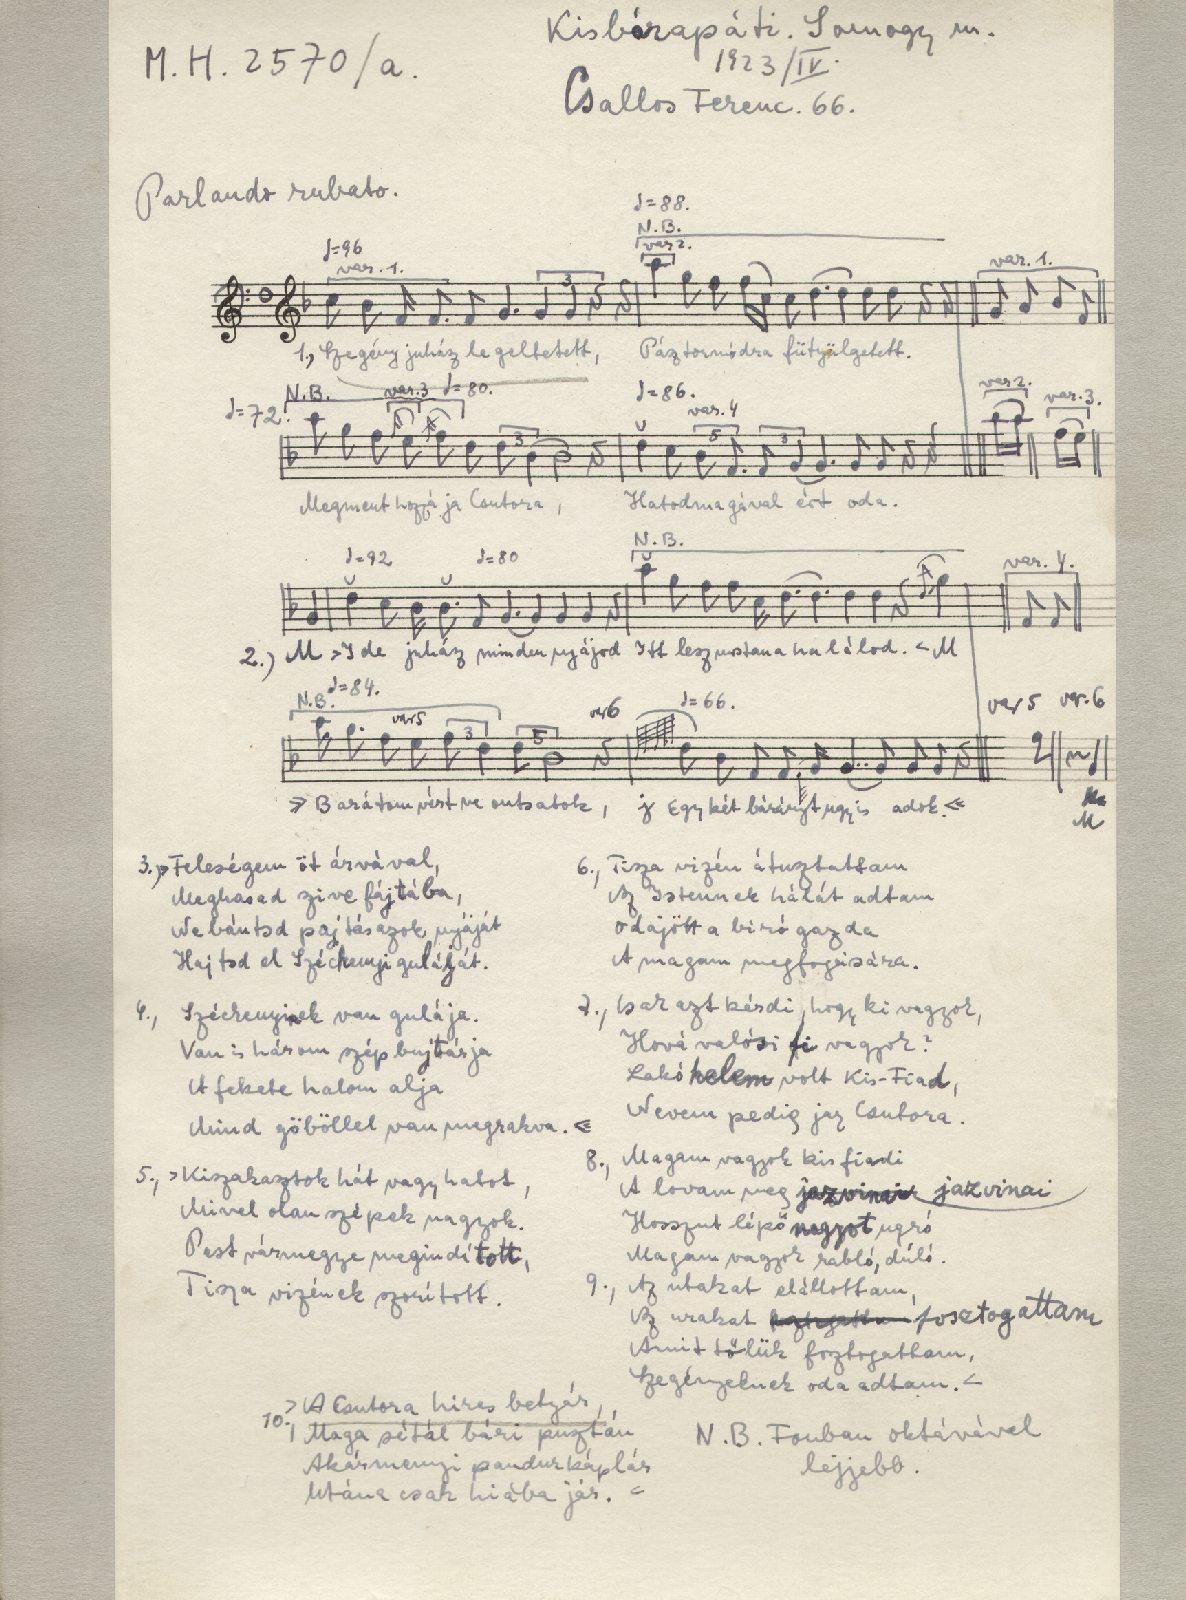 Kisbárapáti. Somogy m.
M.H. 2570/a.
1923/IV.
Csallos Ferenc. 66.
Parlando rubato.
♩=88.
N.B.
♩=96
var. 1. 3 var 2. var. 1.
1., Szegény juház legeltetett, Pásztormódra fütyülgetett.
N.B. var. 3 ♩=80. ♩=86. var 2. var. 3.
♩=72. 3 var. 4 5 3
Megment hozzá ja Csutora, Hatodmagával ért oda.
♩=92 ♩=80 N.B. var. 4.
2.) M >Ide juház minden nyájod Itt lesz mostana halálod. < M
N.B. ♩=84. var 5 3 5 var 6 ♩=66. var 5 var. 6
Barátom vért ne ontsatok, Egy két bárányt ugyis adok.
M
3., Feleségem öt árvával,
Meghasad szive fájtába,
Ne bántsd pajtásazok nyáját
Hajtsd el Széchenyi guláját.
4., Széchenyinek van gulája.
Van is három szép bujtárja
A fekete halom alja
Mind göböllel van megrakva.
5., >Kiszakasztok hát vagy hatot,
Mivel olan szépek nagyok.
Pest vármegye megindított,
Tisza vizének szorított.
6., Tisza vizén átusztattam
Az Istennek hálát adtam
Odajött a biró gazda
A magam megfogására.
7., Csak azt kérdi, hogy ki vagyok,
Hová valósi fi vagyok?
Lakóhelem volt Kis-Fiad,
Nevem pedig jaz Csutora.
8., Magam vagyok kisfiadi
A lovam meg jazvinai jazvinai
Hosszut lépő nagyot ugró
Magam vagyok rabló, dúló.
9., Az utakat elállottam,
Az urakat fosztogattam
Amit tőlük fosztogattam,
Szegényeknek oda adtam. <
10., > A Csutora hires betyár,
Maga sétál bári pusztán
Akármennyi pandurkáplár
Utána csak hiába jár. <
N.B. Fonban oktávával
lejjebb.